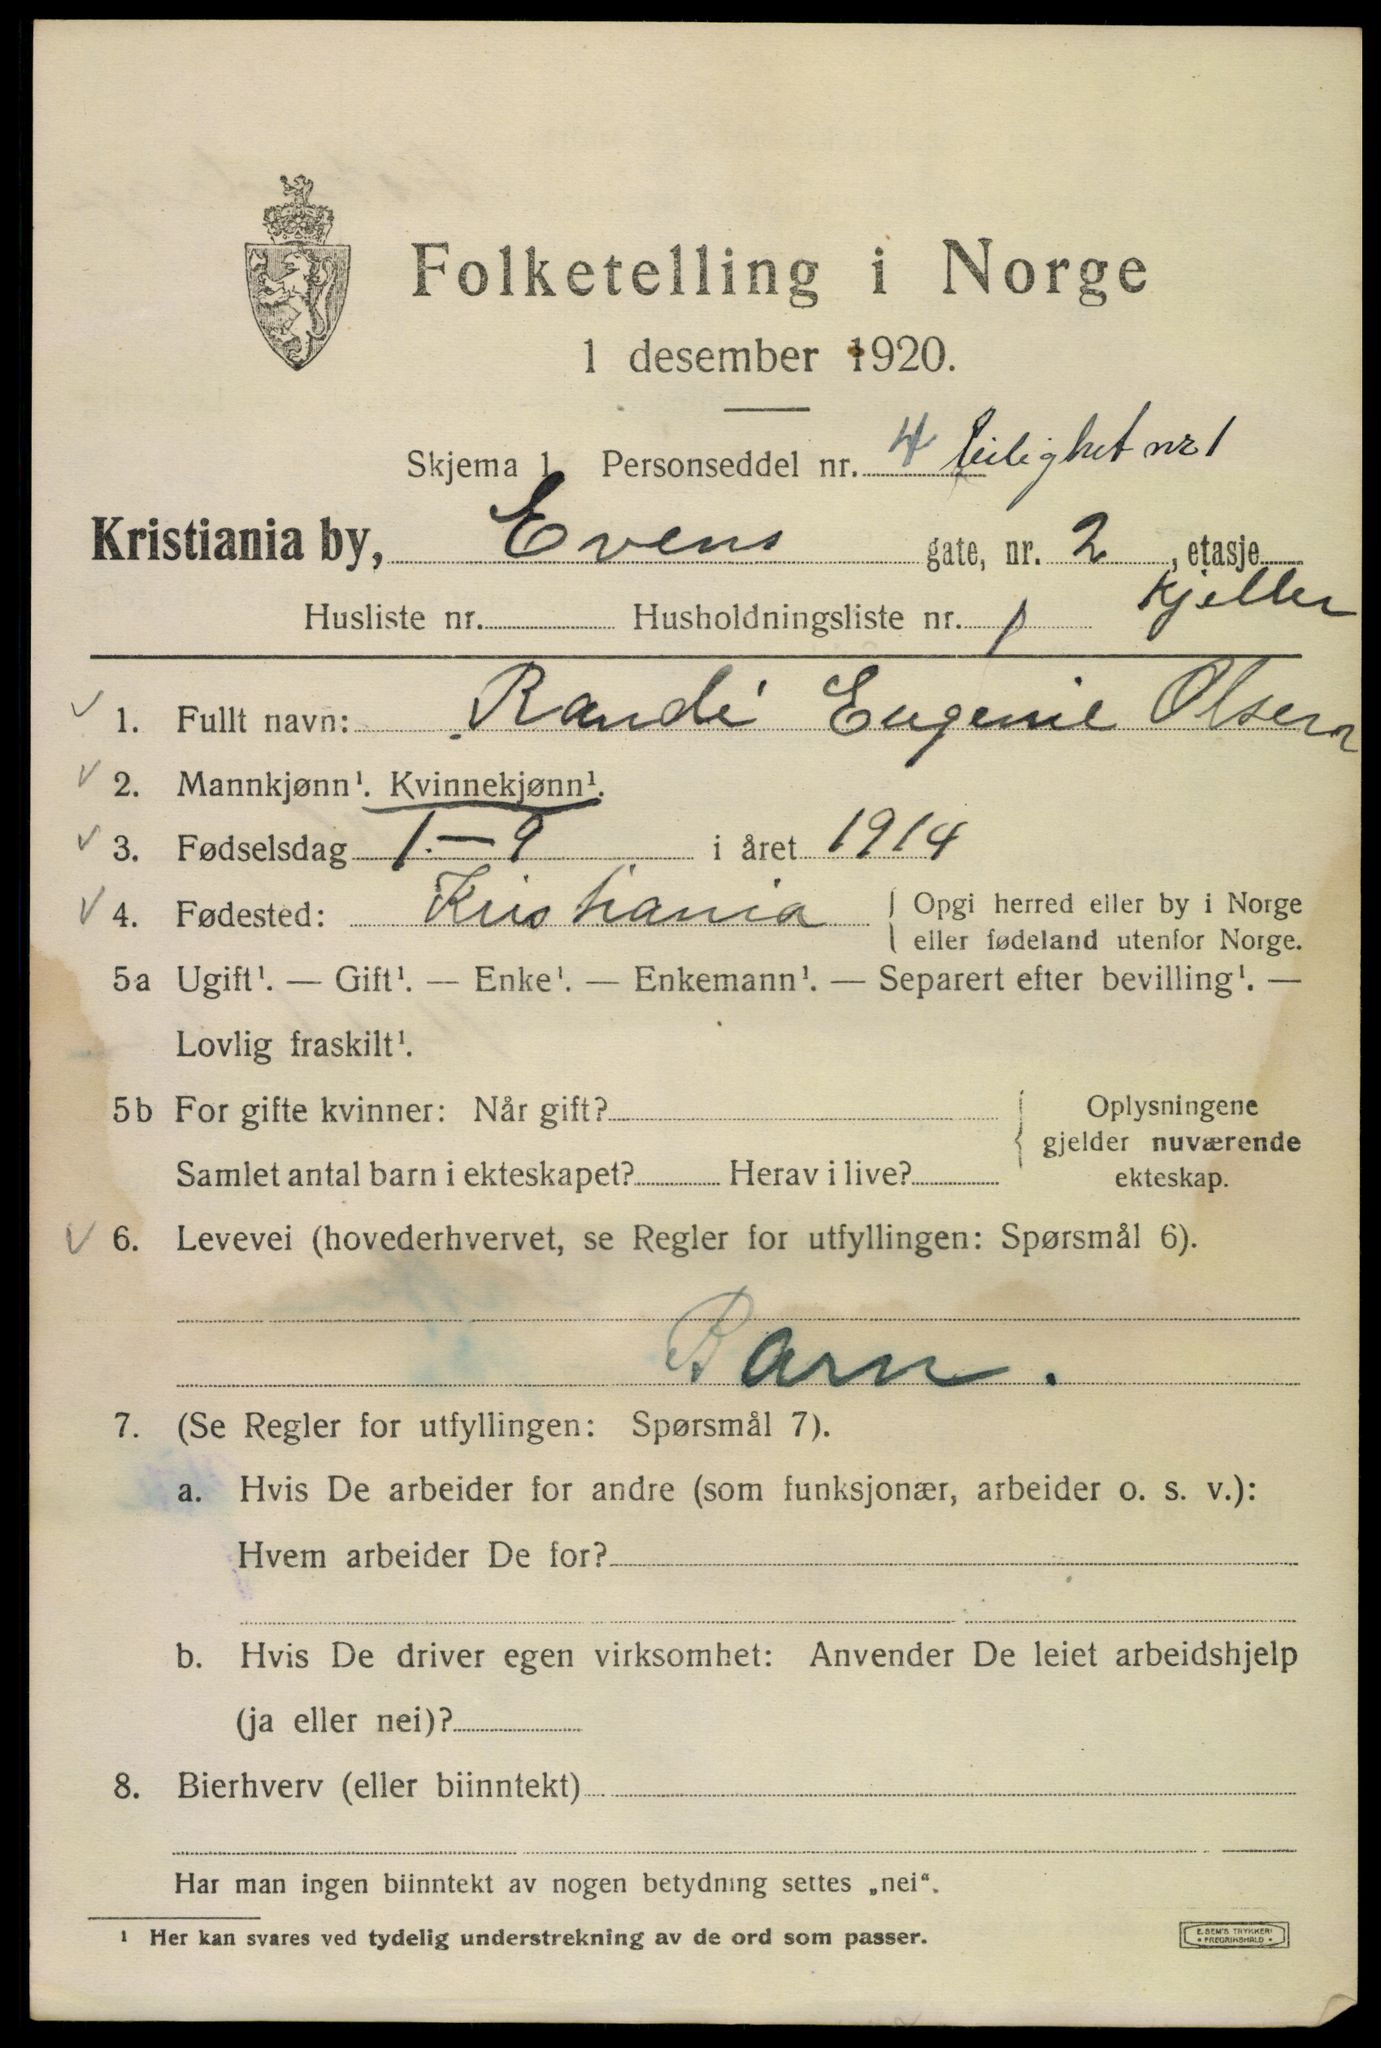 Folketelling i Norge
1 desember 1920.
Skjema 1 Personseddel nr. 4 leilighet nr 1
Kristiania by, Evens gate, nr. 2, etasje
Kjeller
Husliste nr. Husholdningsliste nr. 1
1. Fullt navn: Randi Eugenie Olsen
2. Mannkjønn¹. Kvinnekjønn¹.
3. Fødselsdag 1.—9 i året 1914
4. Fødested: Kristiania { Opgi herred eller by i Norge
eller fødeland utenfor Norge.
5a Ugift¹. — Gift¹. — Enke¹. — Enkemann¹. — Separert efter bevilling¹. —
Lovlig fraskilt¹.
5b For gifte kvinner: Når gift?
Samlet antal barn i ekteskapet? Herav i live?
Oplysningene
gjelder nuværende
ekteskap.
6. Levevei (hovederhvervet, se Regler for utfyllingen: Spørsmål 6).
Barn.
7. (Se Regler for utfyllingen: Spørsmål 7).
a. Hvis De arbeider for andre (som funksjonær, arbeider o. s. v.):
Hvem arbeider De for?
b. Hvis De driver egen virksomhet: Anvender De leiet arbeidshjelp
(ja eller nei)?
8. Bierhverv (eller biinntekt)
Har man ingen biinntekt av nogen betydning settes „nei“.
¹ Her kan svares ved tydelig understrekning av de ord som passer.
E. SEM'S TRYKKERI
• FREDRIKSHALD •